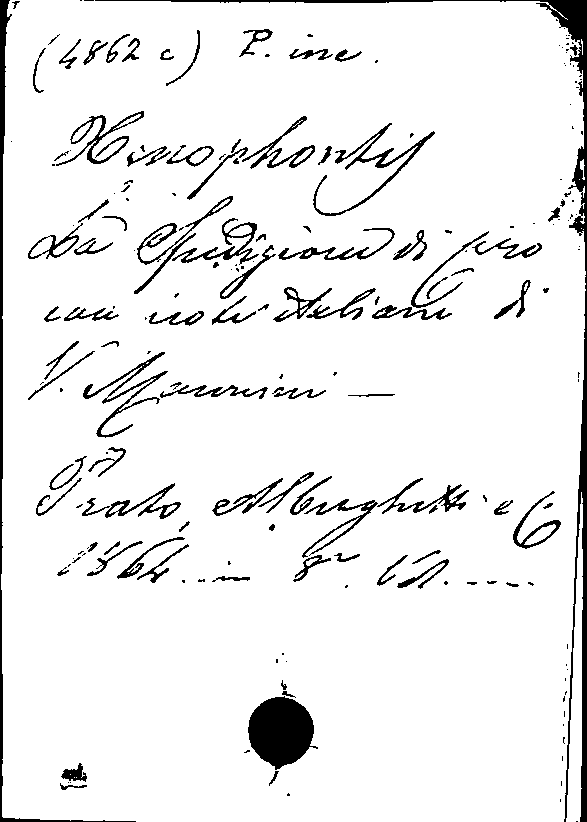 (4862 c) P. inc.
Xenophontis
La Spedizione di Ciro
con note italiane di
V. Mannini —
Prato, Alberghetti e C
1864... in 8°. Vol. ----